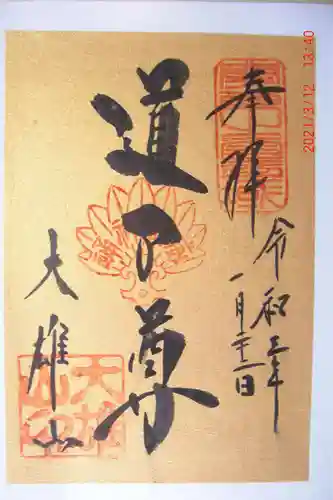 奉拝
令和三年
一月二十二日
道了尊
大雄山
2021/3/12 13:40